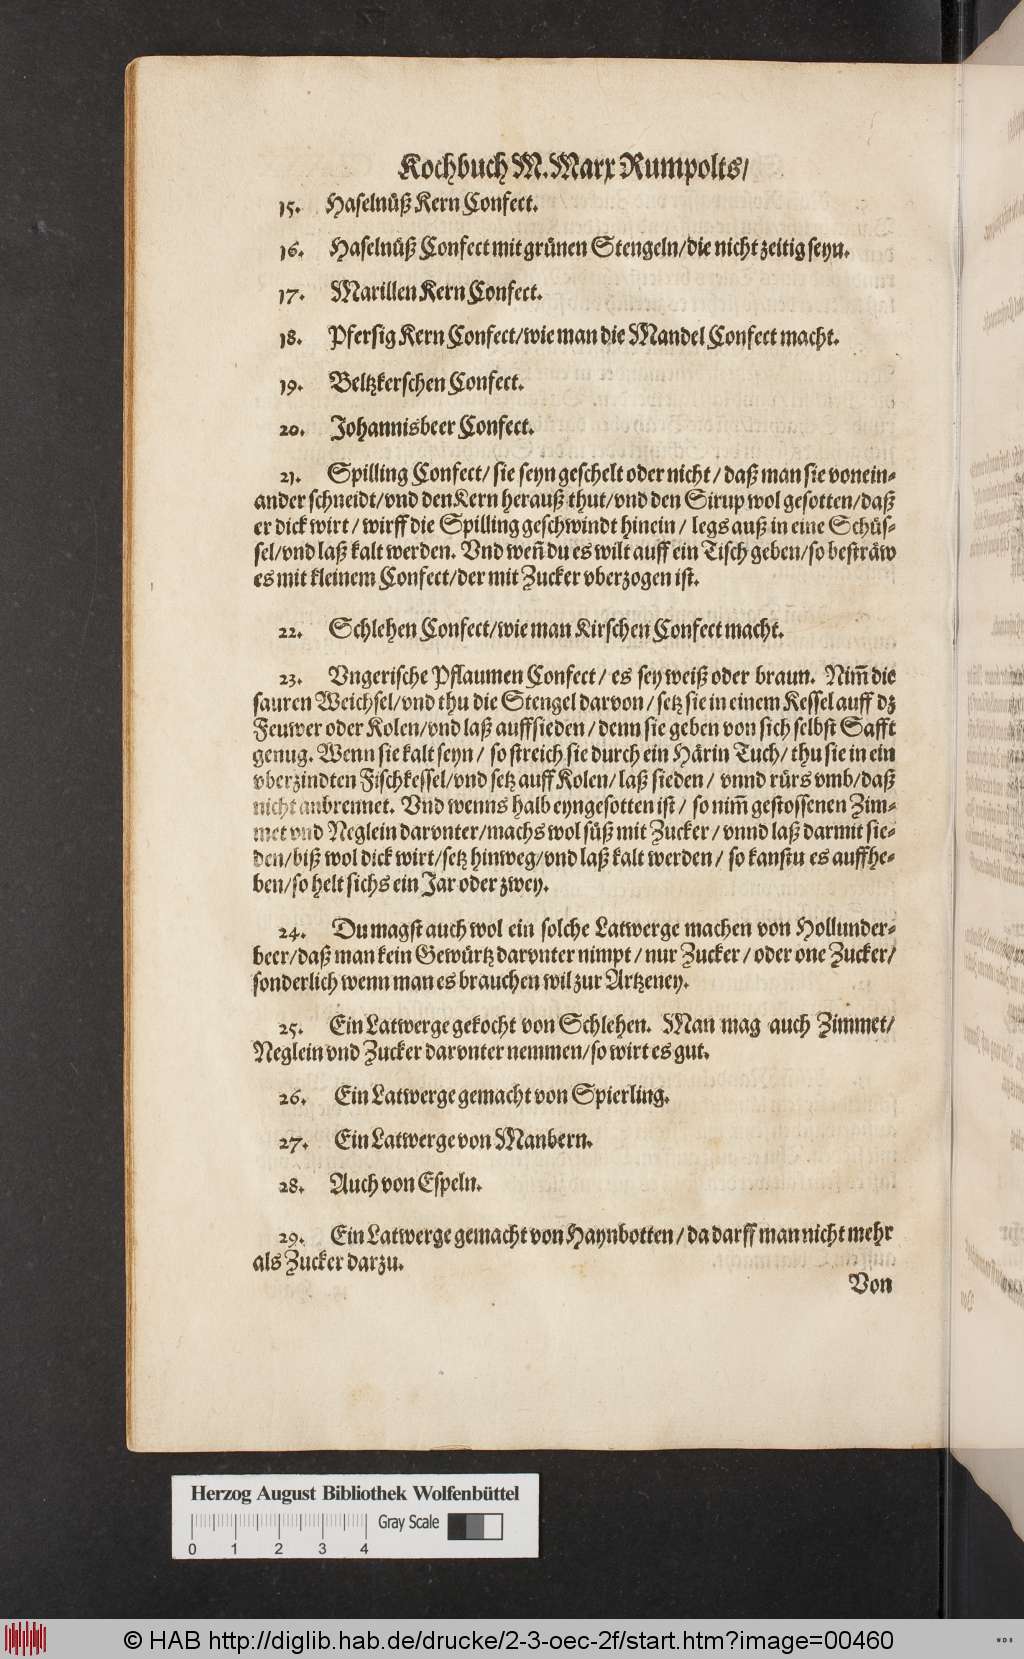 Kochbuch M. Marx Rumpolts/
15. Haselnüß Kern Confect.
16. Haselnüß Confect mit grünen Stengeln/die nicht zeitig seyn.
17. Marillen Kern Confect.
18. Pfersig Kern Confect/wie man die Mandel Confect macht.
19. Beltzkerschen Confect.
20. Johannisbeer Confect.
21. Spilling Confect/ sie seyn geschelt oder nicht / daß man sie vonein-
ander schneidt/vnd den Kern herauß thut/vnd den Sirup wol gesotten/daß
er dick wirt / wirff die Spilling geschwindt hinein / legs auß in eine Schüs-
sel/vnd laß kalt werden. Vnd weñ du es wilt auff ein Tisch geben/so besträw
es mit kleinem Confect/der mit Zucker vberzogen ist.
22. Schlehen Confect/wie man Kirschen Confect macht.
23. Vngerische Pflaumen Confect / es sey weiß oder braun. Nim̃ die
sauren Weichsel/vnd thu die Stengel darvon / setz sie in einem Kessel auff dz
Feuwer oder Kolen/vnd laß auffsieden / denn sie geben von sich selbst Safft
genug. Wenn sie kalt seyn / so streich sie durch ein Härin Tuch/ thu sie in ein
vberzindten Fischkessel/vnd setz auff Kolen/ laß sieden / vnnd rürs vmb/daß
nicht anbrennet. Vnd wenns halb eyngesotten ist / so nim̃ gestossenen Zim-
met vnd Neglein darvnter/machs wol süß mit Zucker / vnnd laß darmit sie-
den/biß wol dick wirt/setz hinweg/vnd laß kalt werden / so kanstu es auffhe-
ben/so helt sichs ein Jar oder zwey.
24. Du magst auch wol ein solche Latwerge machen von Hollunder-
beer/daß man kein Gewürtz darvnter nimpt / nur Zucker / oder one Zucker/
sonderlich wenn man es brauchen wil zur Artzeney.
25. Ein Latwerge gekocht von Schlehen. Man mag auch Zimmet/
Neglein vnd Zucker darvnter nemmen/so wirt es gut.
26. Ein Latwerge gemacht von Spierling.
27. Ein Latwerge von Manbern.
28. Auch von Espeln.
29. Ein Latwerge gemacht von Haynbotten / da darff man nicht mehr
als Zucker darzu.
Von
Herzog August Bibliothek Wolfenbüttel
Gray Scale
0 1 2 3 4
© HAB http://diglib.hab.de/drucke/2-3-oec-2f/start.htm?image=00460